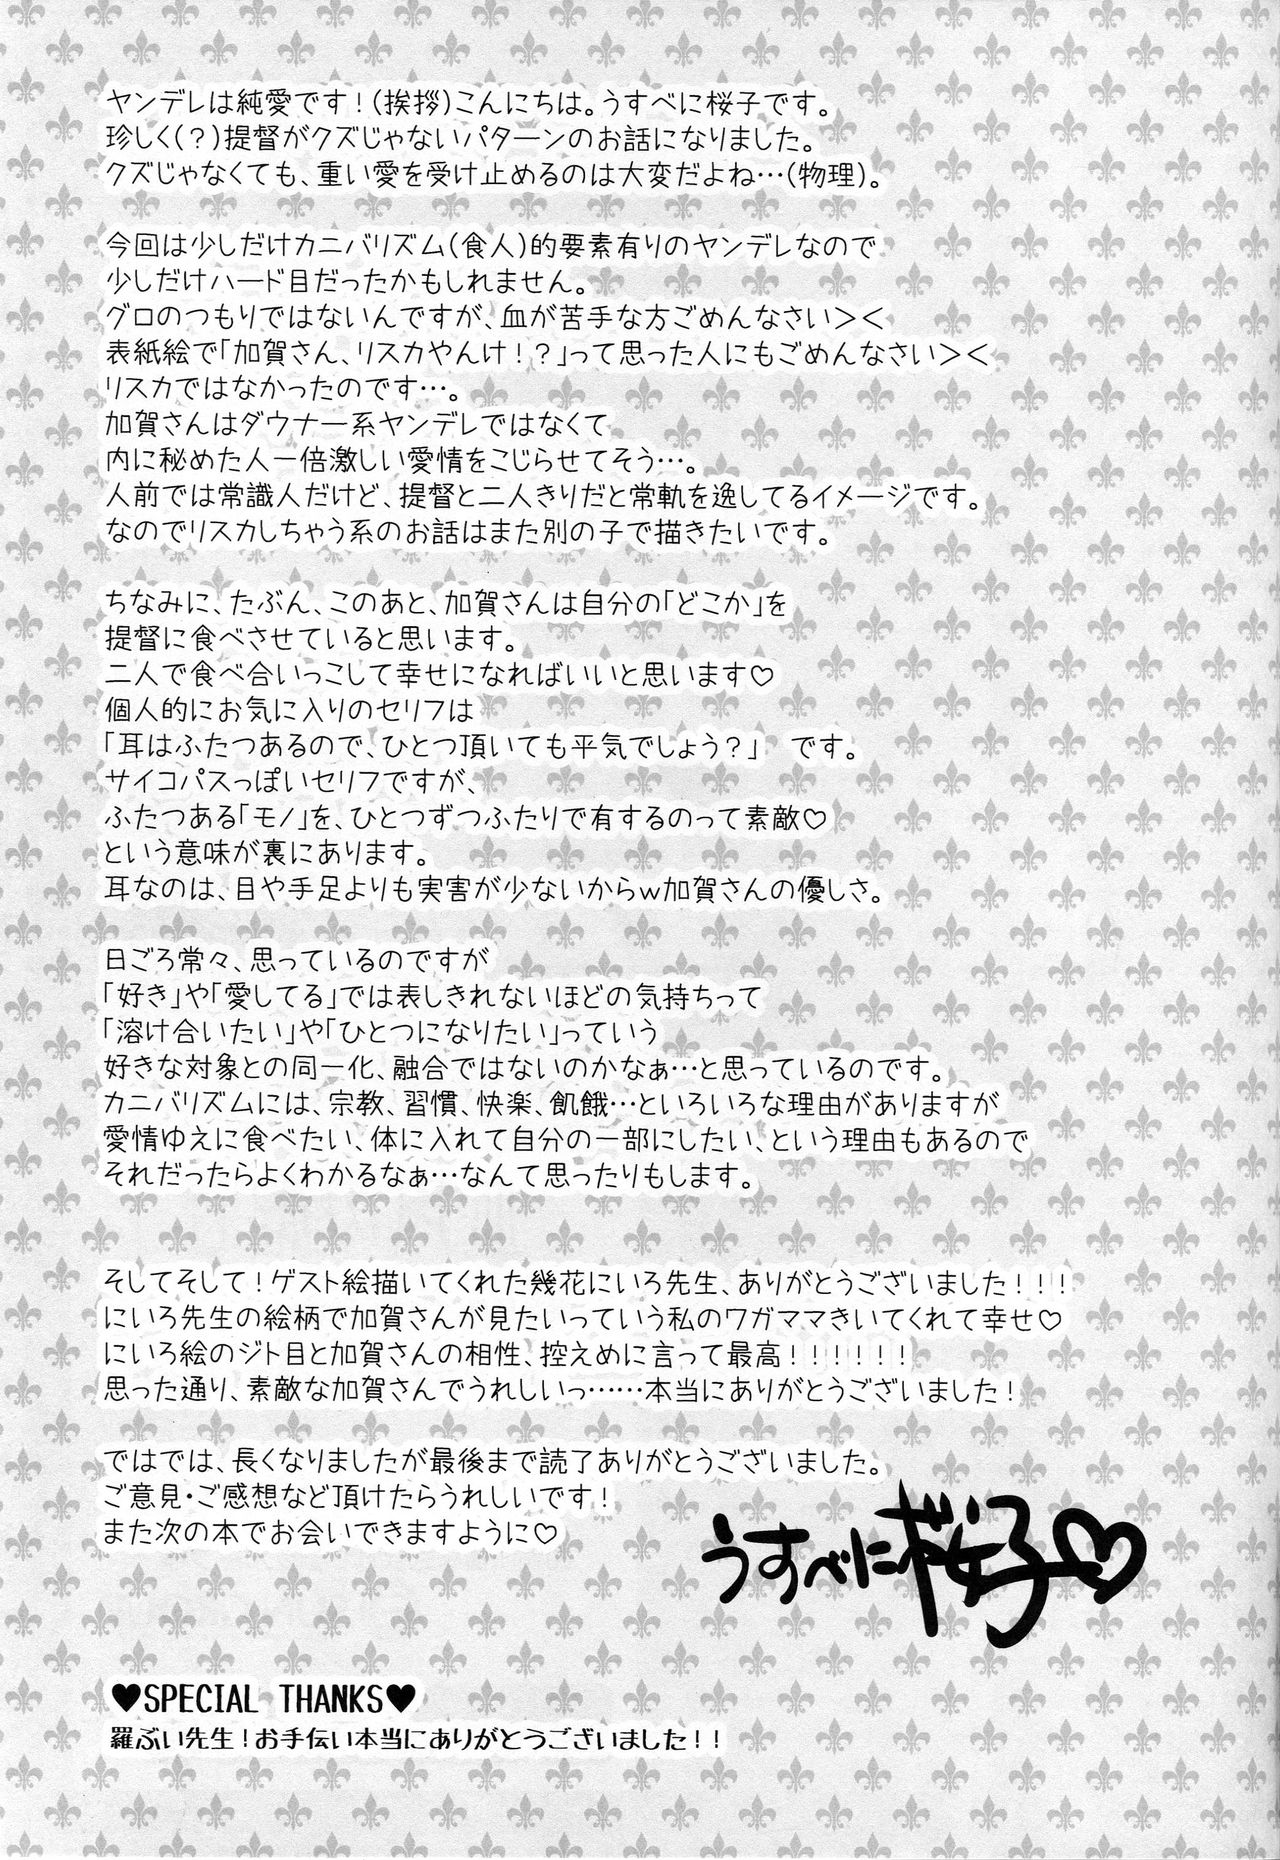 ヤンデレは純愛です！(挨拶)こんにちは。うすべに桜子です。
珍しく(？)提督がクズじゃないパターンのお話になりました。
クズじゃなくても、重い愛を受け止めるのは大変だよね…(物理)。
今回は少しだけカニバリズム(食人)的要素有りのヤンデレなので
少しだけハード目だったかもしれません。
グロのつもりではないんですが、血が苦手な方ごめんなさい＞＜
表紙絵で「加賀さん、リスカやんけ！？」って思った人にもごめんなさい＞＜
リスカではなかったのです…。
加賀さんはダウナー系ヤンデレではなくて
内に秘めた人一倍激しい愛情をこじらせてそう…。
人前では常識人だけど、提督と二人きりだと常軌を逸してるイメージです。
なのでリスカしちゃう系のお話はまた別の子で描きたいです。
ちなみに、たぶん、このあと、加賀さんは自分の「どこか」を
提督に食べさせていると思います。
二人で食べ合いっこして幸せになればいいと思います♡
個人的にお気に入りのセリフは
「耳はふたつあるので、ひとつ頂いても平気でしょう？」　です。
サイコパスっぽいセリフですが、
ふたつある「モノ」を、ひとつずつふたりで有するのって素敵♡
という意味が裏にあります。
耳なのは、目や手足よりも実害が少ないからｗ加賀さんの優しさ。
日ごろ常々、思っているのですが
「好き」や「愛してる」では表しきれないほどの気持ちって
「溶け合いたい」や「ひとつになりたい」っていう
好きな対象との同一化、融合ではないのかなぁ…と思っているのです。
カニバリズムには、宗教、習慣、快楽、飢餓…といろいろな理由がありますが
愛情ゆえに食べたい、体に入れて自分の一部にしたい、という理由もあるので
それだったらよくわかるなぁ…なんて思ったりもします。
そしてそして！ゲスト絵描いてくれた幾花にいろ先生、ありがとうございました！！！
にいろ先生の絵柄で加賀さんが見たいっていう私のワガママきいてくれて幸せ♡
にいろ絵のジト目と加賀さんの相性、控えめに言って最高！！！！！！
思った通り、素敵な加賀さんでうれしいっ……本当にありがとうございました！
ではでは、長くなりましたが最後まで読了ありがとうございました。
ご意見・ご感想など頂けたらうれしいです！
また次の本でお会いできますように♡
うすべに桜子♡
♥SPECIAL THANKS♥
羅ぶい先生！お手伝い本当にありがとうございました！！